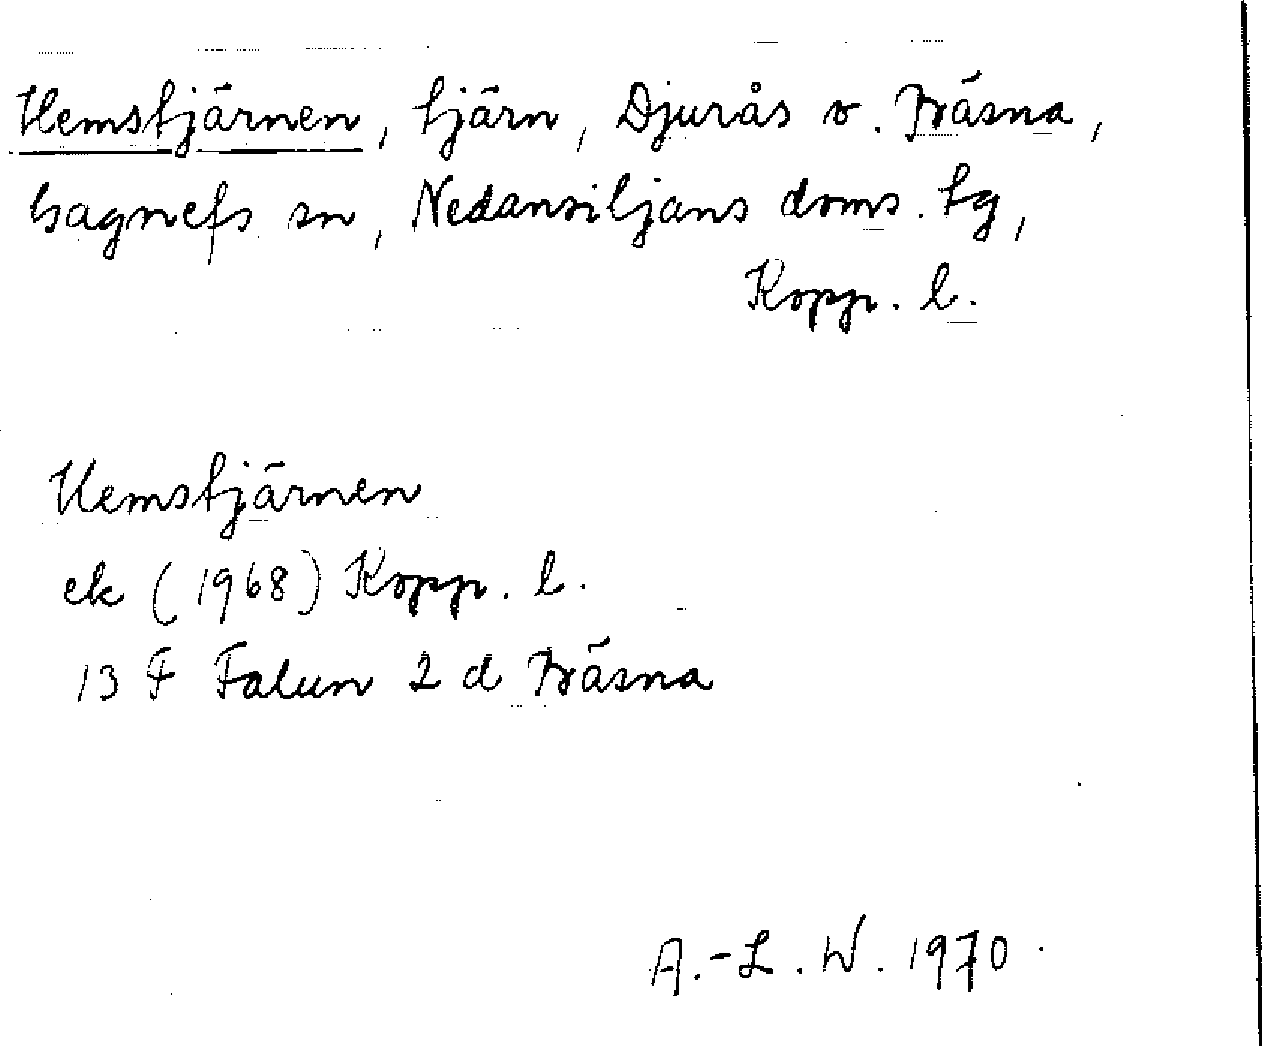 Hemstjärnen, tjärn, Djurås o. Präsna,
Gagnefs sn, Nedansiljans doms. tg,
Kopp. l.
Hemstjärnen
ek (1968) Kopp. l.
13 F Falun 2 d Präsna
A.-L. W. 1970.